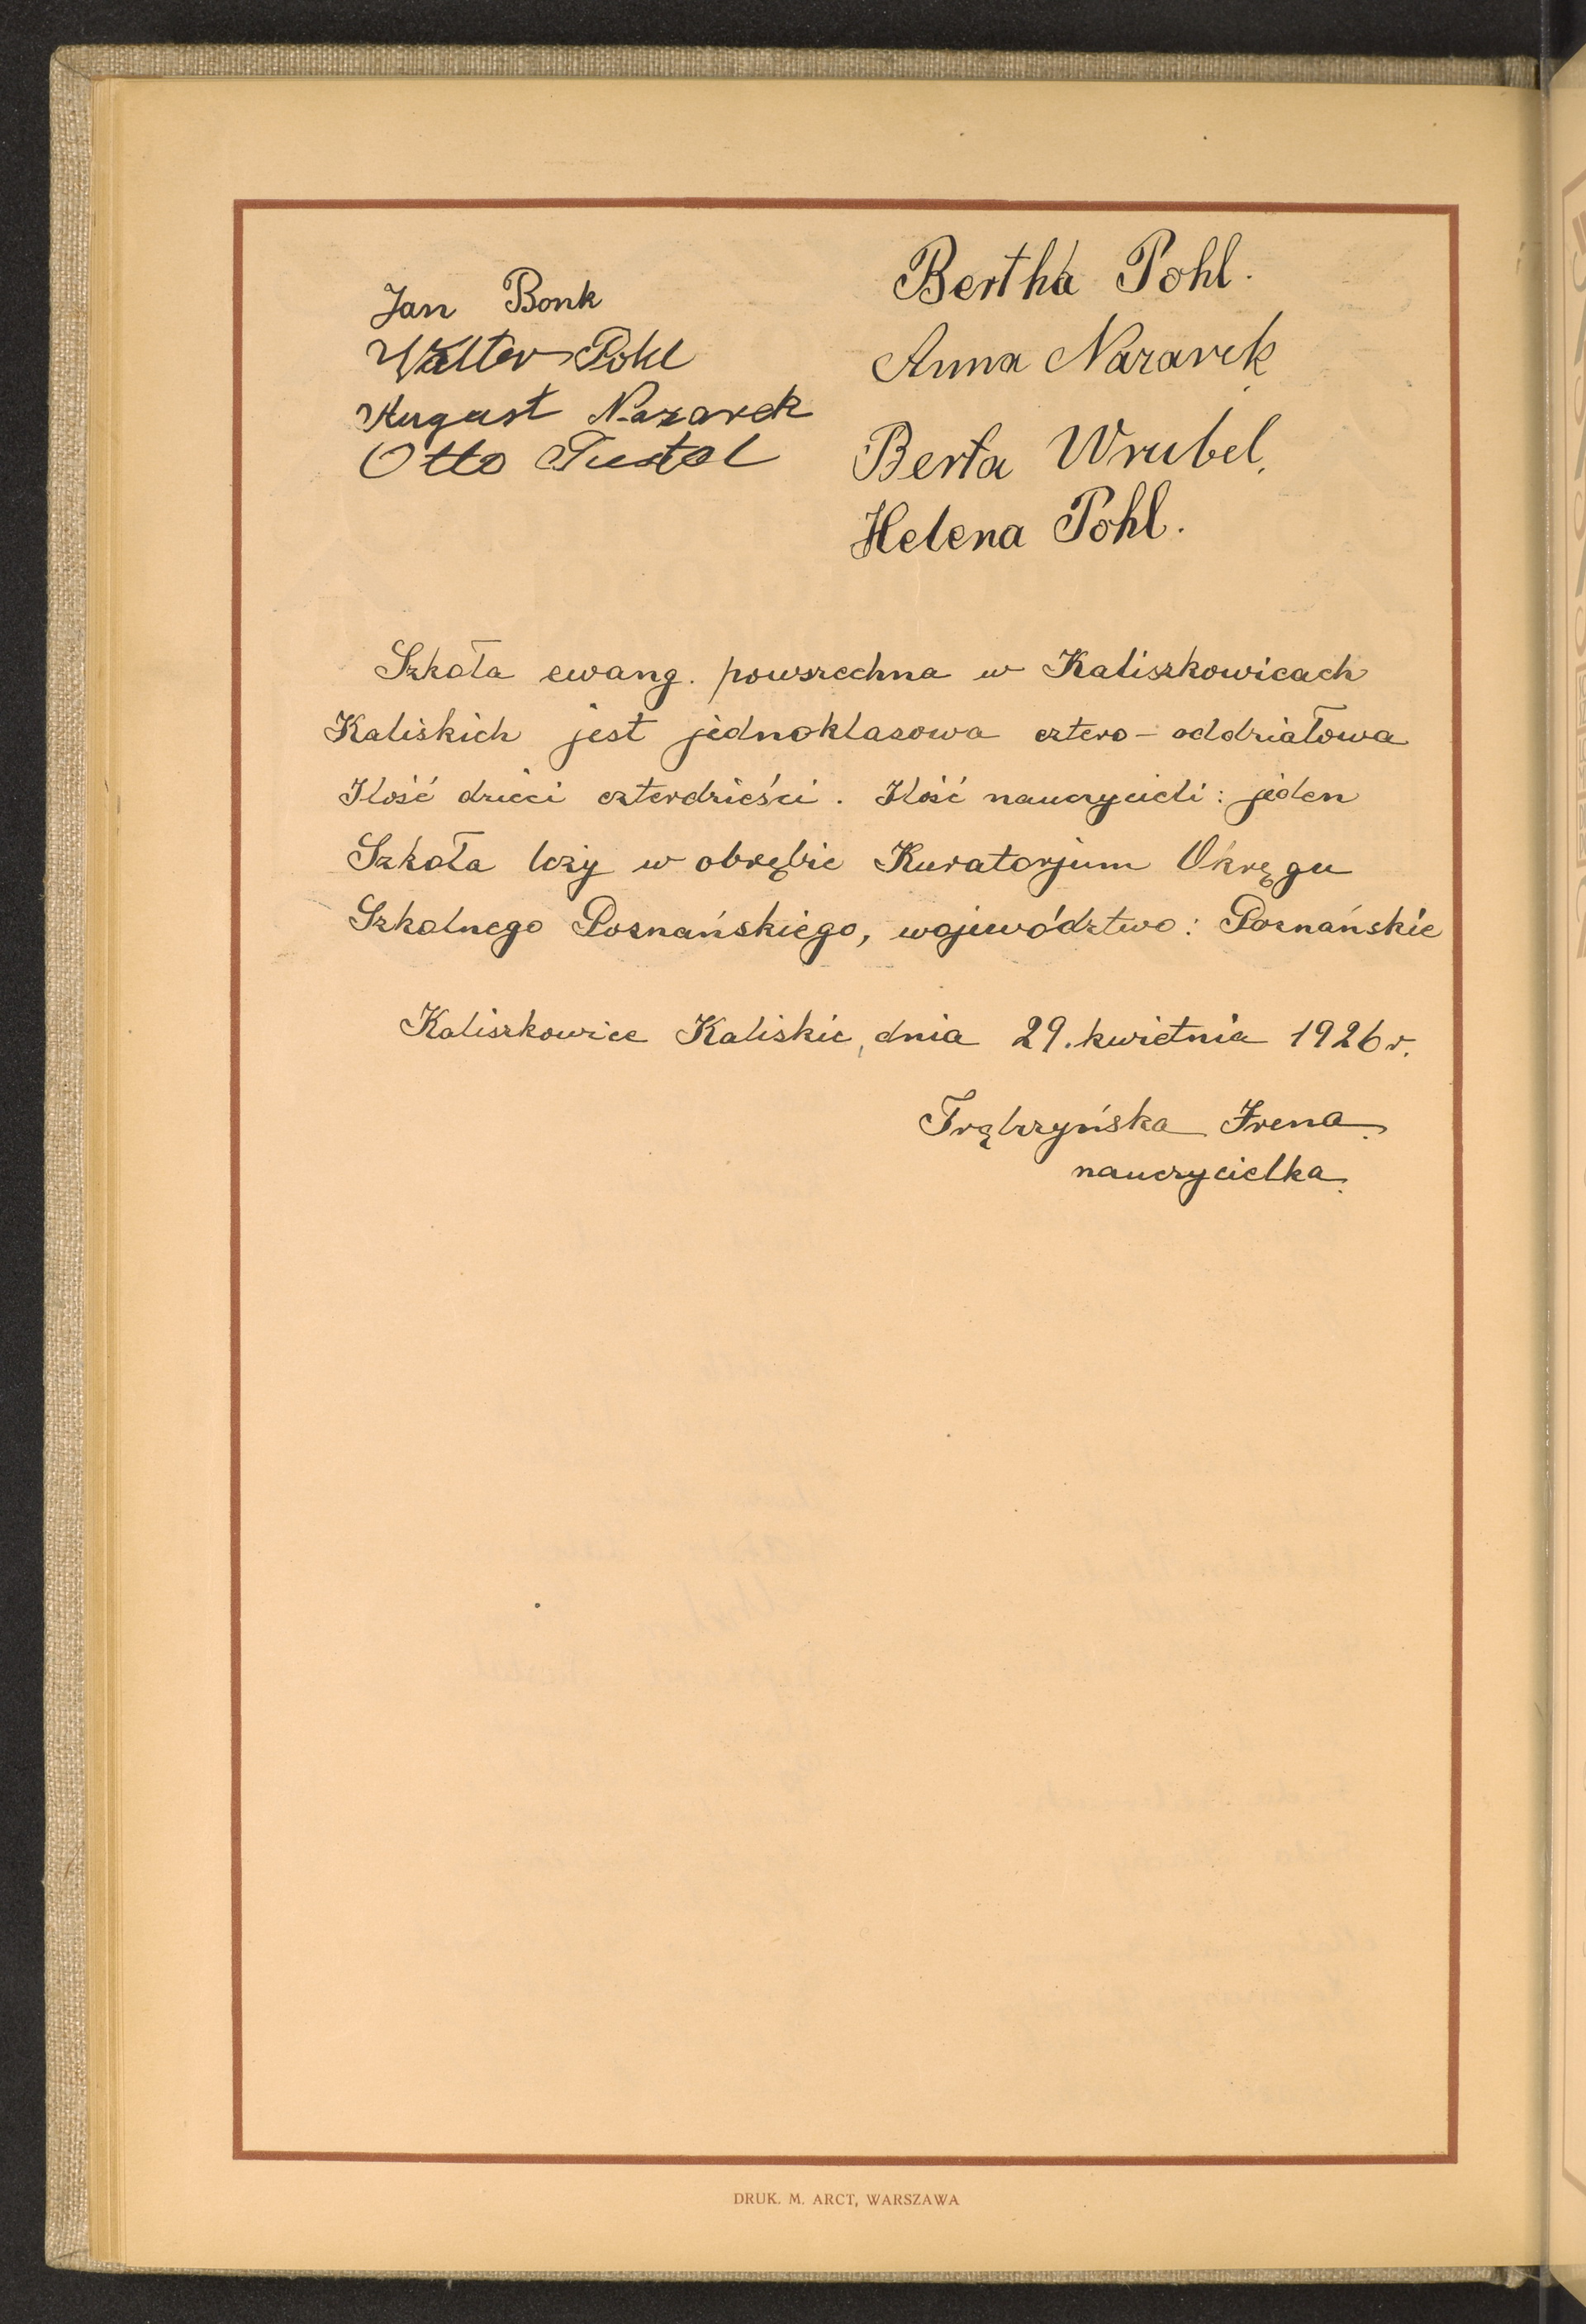 Jan Bonk
Walter Pohl
August Nazarek
Otto Pustol
Bertha Pohl.
Anna Nazarek
Berta Wrubel.
Helena Pohl.
Szkoła ewang. powszechna w Kaliszkowicach
Kaliskich jest jednoklasowa cztero-oddziałowa
Ilość dzieci czterdzieści. Ilość nauczycieli: jeden
Szkoła leży w obrębie Kuratorjum Okręgu
Szkolnego Poznańskiego, województwo: Poznańskie
Kaliszkowice Kaliskie, dnia 29. kwietnia 1926 r.
Trąbczyńska Irena.
nauczycielka.
DRUK. M. ARCT, WARSZAWA